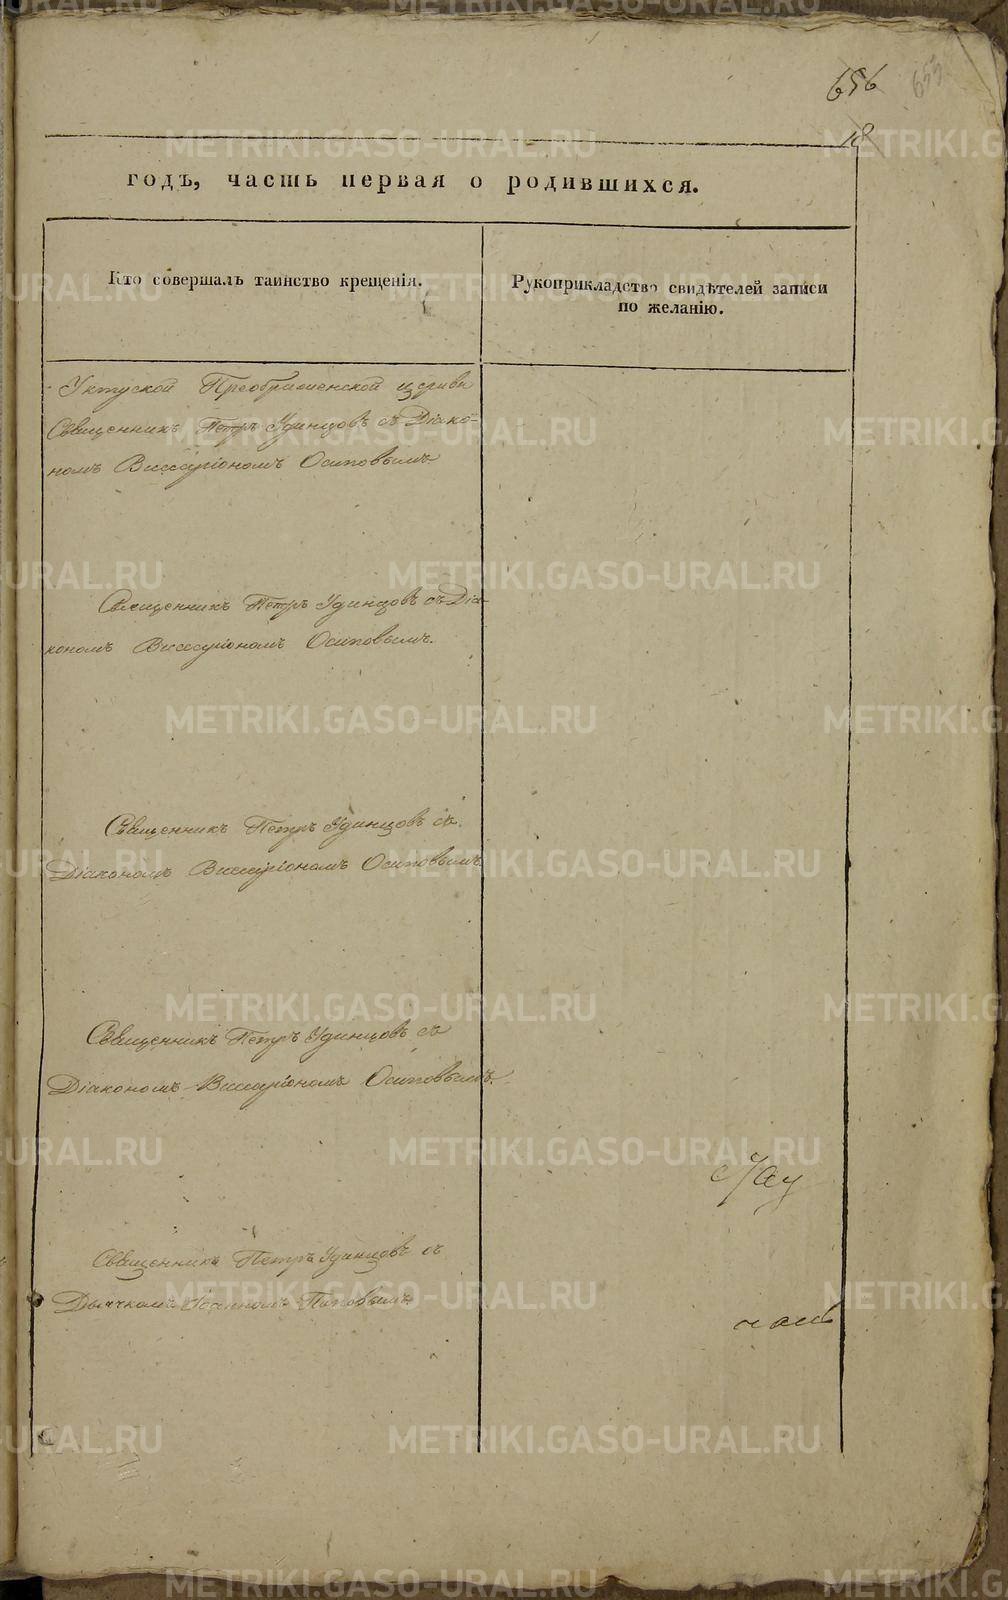 656 655
18
годъ, часть первая о родившихся.
Кто совершалъ таинство крещенія.
Рукоприкладство свидѣтелей записи
по желанію.
Уктуской Преображенской церкви
Священникъ Петръ Удинцовъ съ Діако-
номъ Виссаріономъ Осиповымъ.
Священникъ Петръ Удинцовъ съ Діа-
кономъ Виссаріономъ Осиповымъ.
Священникъ Петръ Удинцовъ съ
Діакономъ Виссаріономъ Осиповымъ.
Священникъ Петръ Удинцовъ съ
Діакономъ Виссаріономъ Осиповымъ.
Священникъ Петръ Удинцовъ съ
Дьячкомъ Іоанномъ Поповымъ.
METRIKI.GASO-URAL.RU